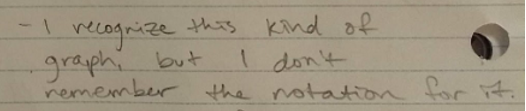 - I recognize this kind of
graph, but I don't
remember the notation for it.